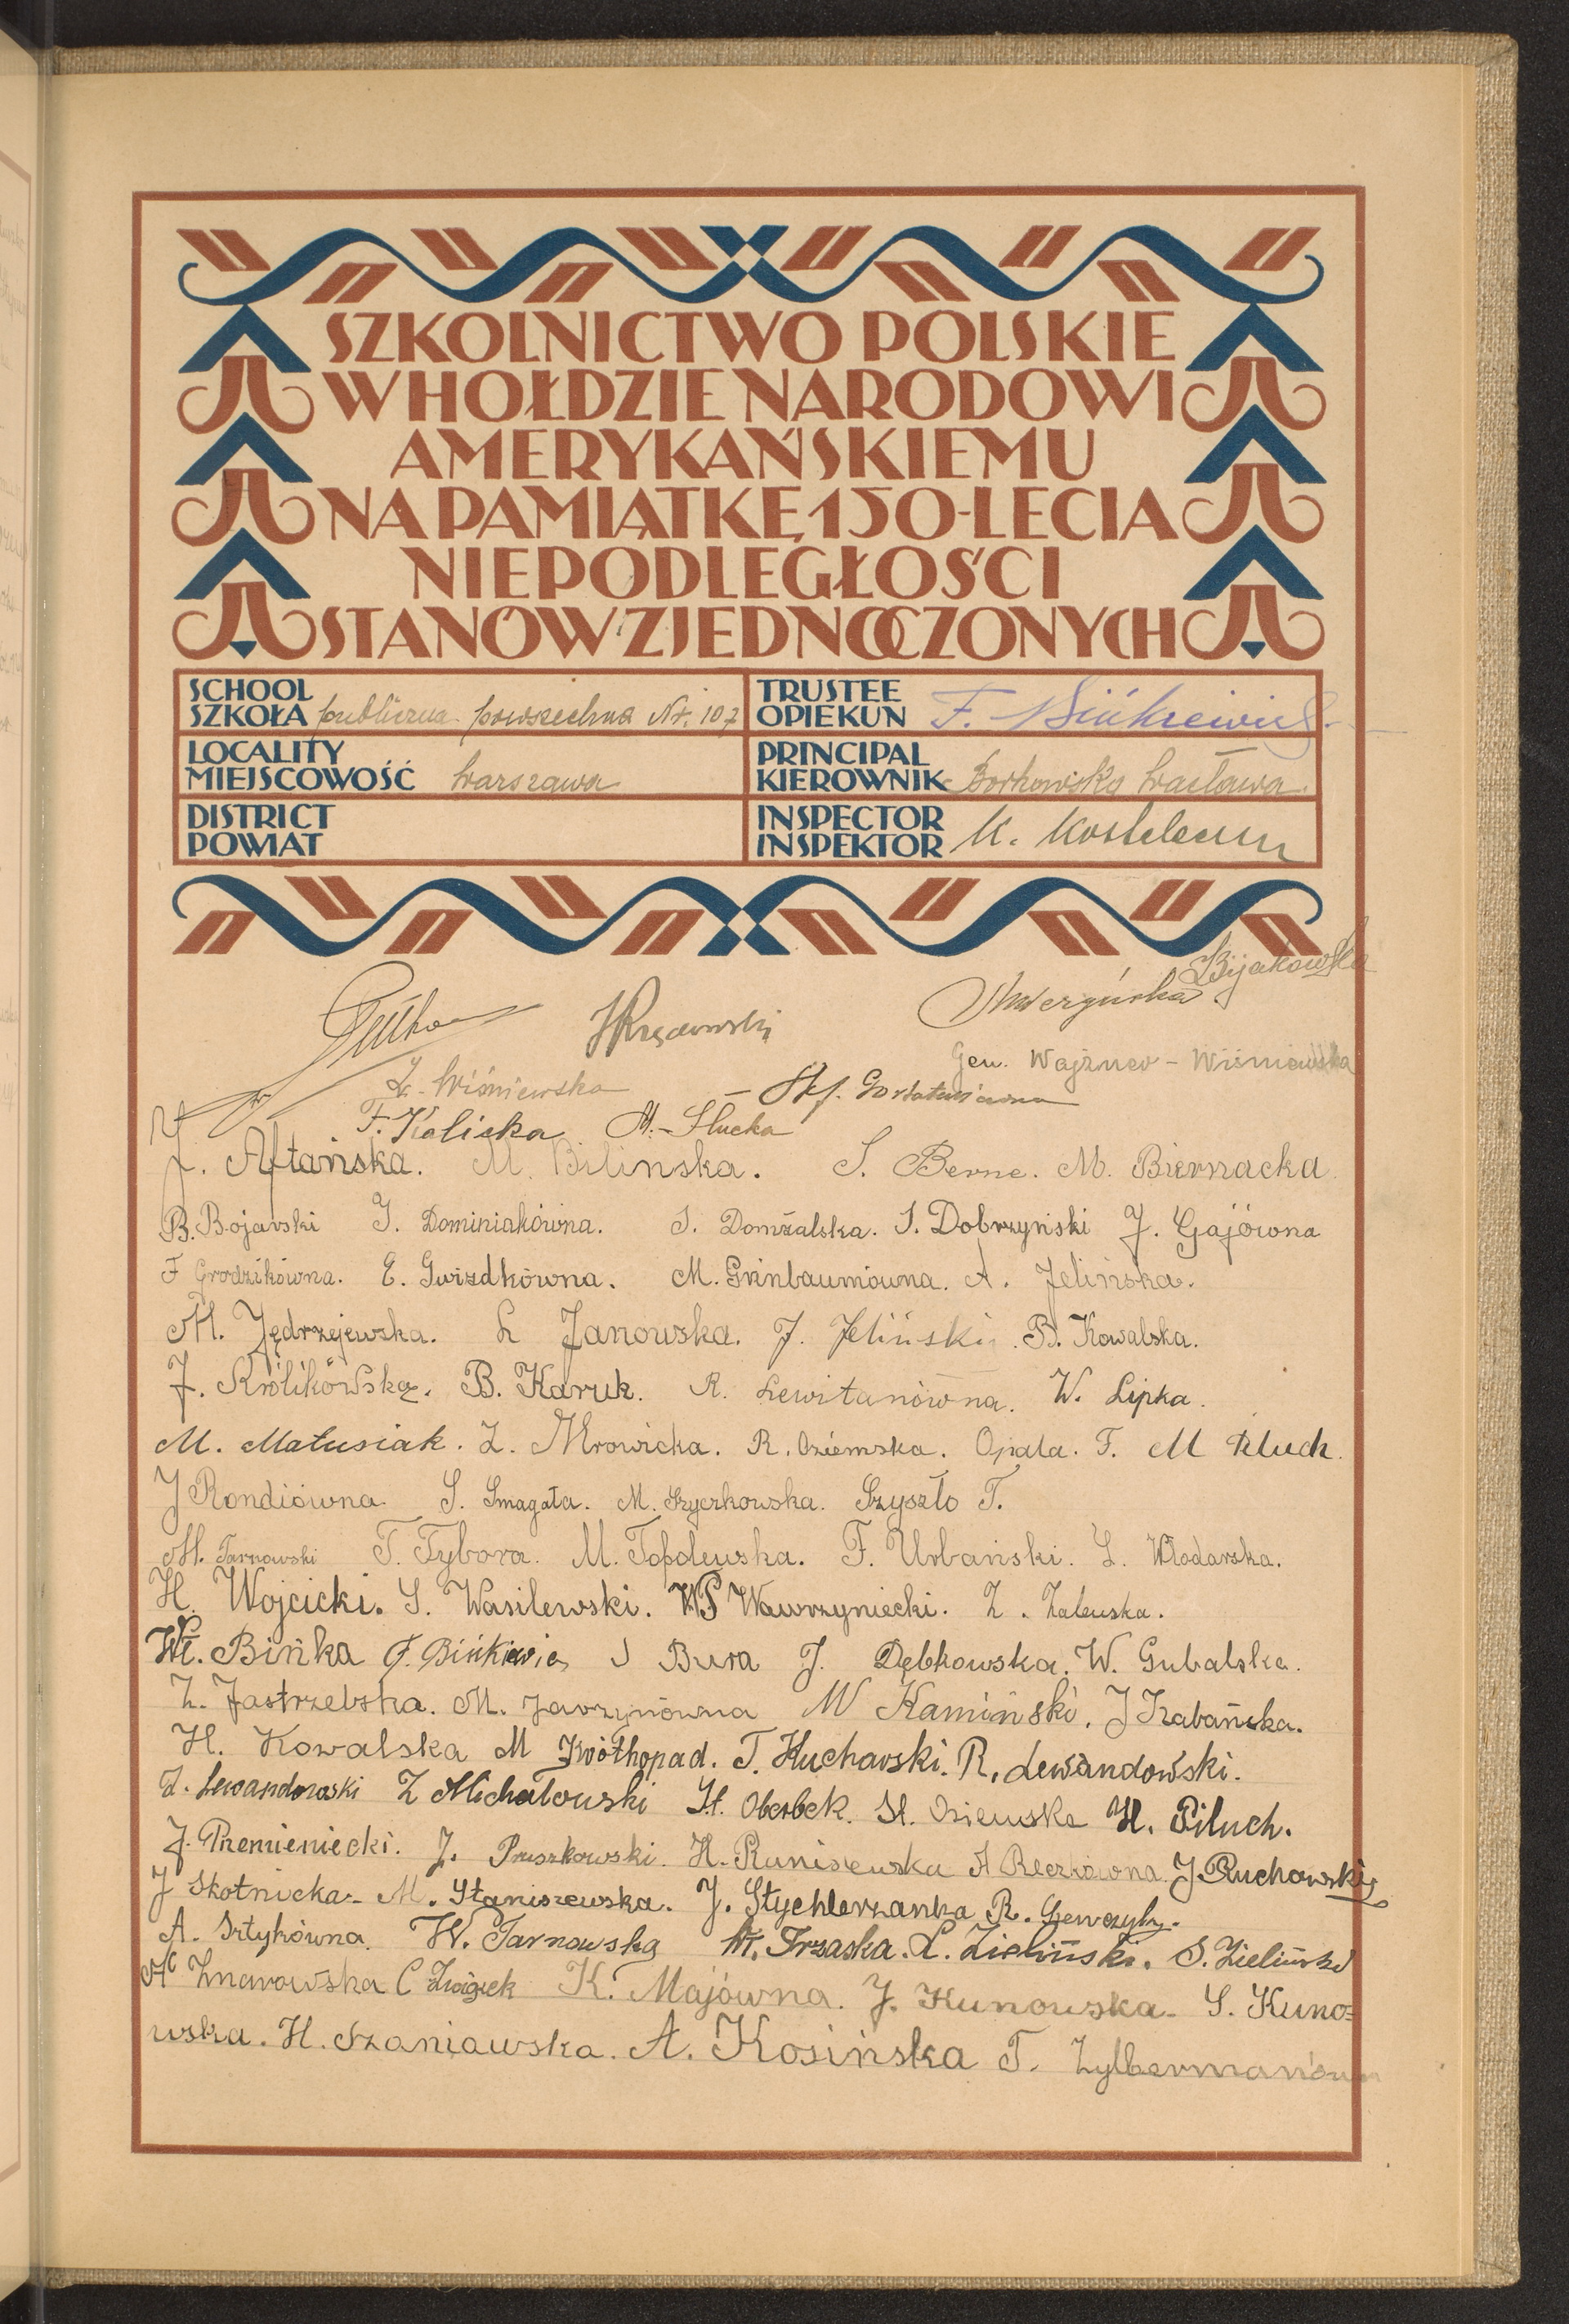 SZKOLNICTWO POLSKIE
W HOŁDZIE NARODOWI
AMERYKAŃSKIEMU
NA PAMIĄTKĘ 150-LECIA
NIEPODLEGŁOŚCI
STANÓW ZJEDNOCZONYCH
SCHOOL
SZKOŁA publiczna powszechna Nr. 107
TRUSTEE
OPIEKUN F.
LOCALITY
MIEJSCOWOŚĆ Warszawa
PRINCIPAL
KIEROWNIK Borkowska Wacława
DISTRICT
POWIAT
INSPECTOR
INSPEKTOR K.
Gen. - Wiśniewska
Z. Wiśniewska
F. Kalicka M. Słucka
J. Aftańska. M. Bilinska. S. Berne. M. Biernacka
B. Bojarski J. Dominiakówna. S. Domżalska. S. Dobrzyński J. Gajówna
F Grodzikówna. E. Gwizdkówna. M. Grinbaumówna. A. Jelińska.
M. Jędrzejewska. L Janowska. J. Jeliński. B. Kowalska.
J. Królikowska. B. Karuk. R. Lewitanówna. W. Lipka.
M. Matusiak. Z. Mrowicka. R. Oziemska. Opala. F. M Pluch.
J Rondiówna S. Smagała. M. Szyczkowska. Szyszło T.
M. Tarnowski T. Tybora. M. Topolewska. F. Urbański. L. Włodarska.
H. Wojcicki. S. Wasilewski. Wawrzyniecki. Z. Zalewska.
Wł. Bińka J. Bińkiewicz J Bura J. Dębkowska. W. Gubalska.
Z. Jastrzebska. M. Jarzynówna W Kamiński. J Krabańska.
H. Kowalska M Krótkopad. T. Kucharski. R. Lewandowski.
Z. Lewandowski Z Michałowski H. Oberbek. H. Osiewska H. Piluch.
J. Premieniecki. J. Pruszkowski. H. Runiszewska A Reczkówna J Ruchowski
J Skotnicka. M. Staniszewska. J. Stychlerzanka R.
A. Sztykówna. W. Tarnowska W. Trzaska. L. Zieliński. S. Zieliński
M Znarowska C Związek K. Majówna. J. Kunowska. S. Kuno=
wska. H. Szaniawska. A. Kosińska T. Zylbermanówna